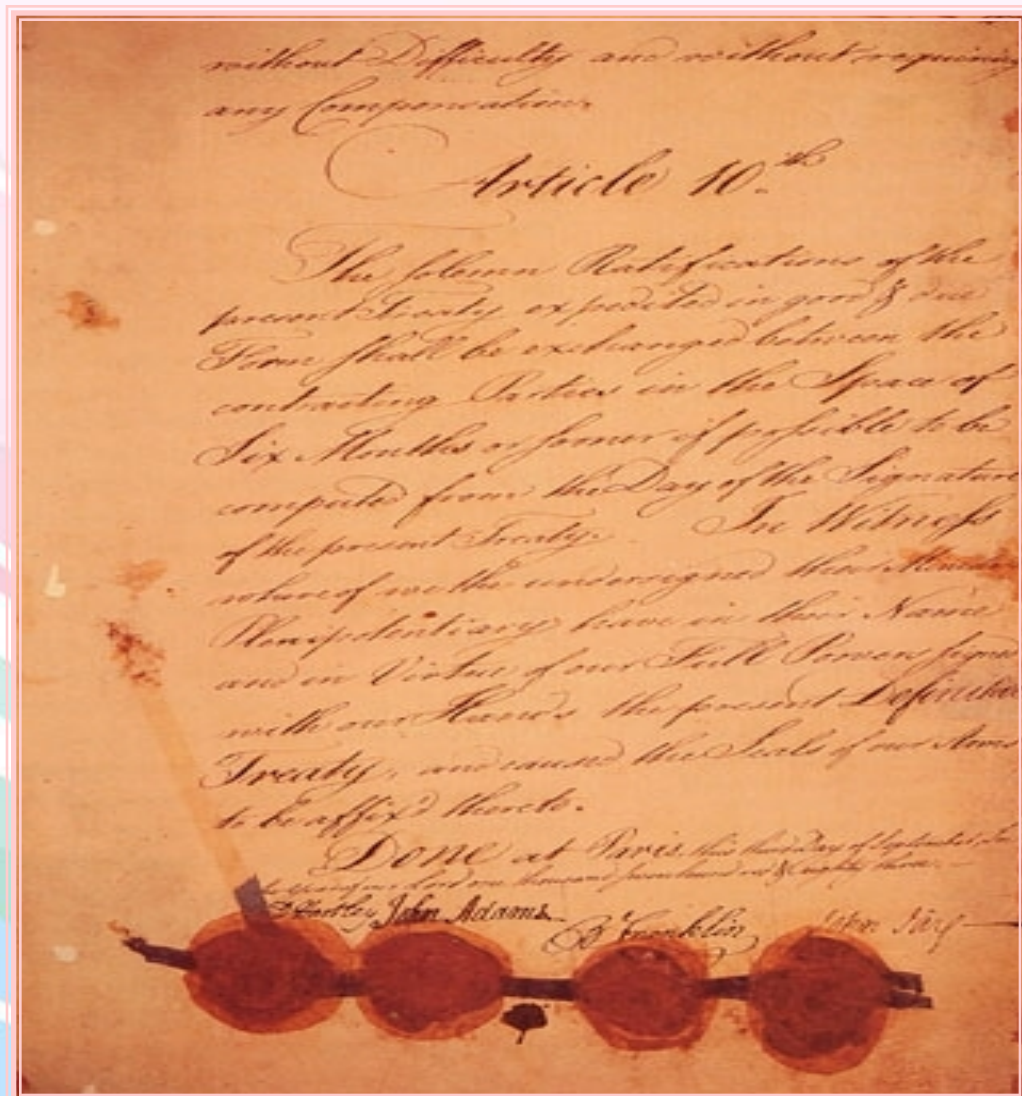 without Difficulty and without requiring
any Compensation.
Article 10.th
The solemn Ratifications of the
present Treaty expedited in good & due
Form shall be exchanged between the
contracting Parties in the Space of
Six Months or sooner if possible to be
computed from the Day of the Signature
of the present Treaty. In Witness
whereof we the undersigned their
Plenipotentiary have in their Name
and in Virtue of our Full Powers signed
with our Hands the present Definitive
Treaty, and caused the Seals of our Arms
to be affix'd thereto.
Done at Paris, this third Day of September, In
the Year of our Lord one thousand seven hundred & eighty three.
D Hartley John Adams B Franklin John Jay